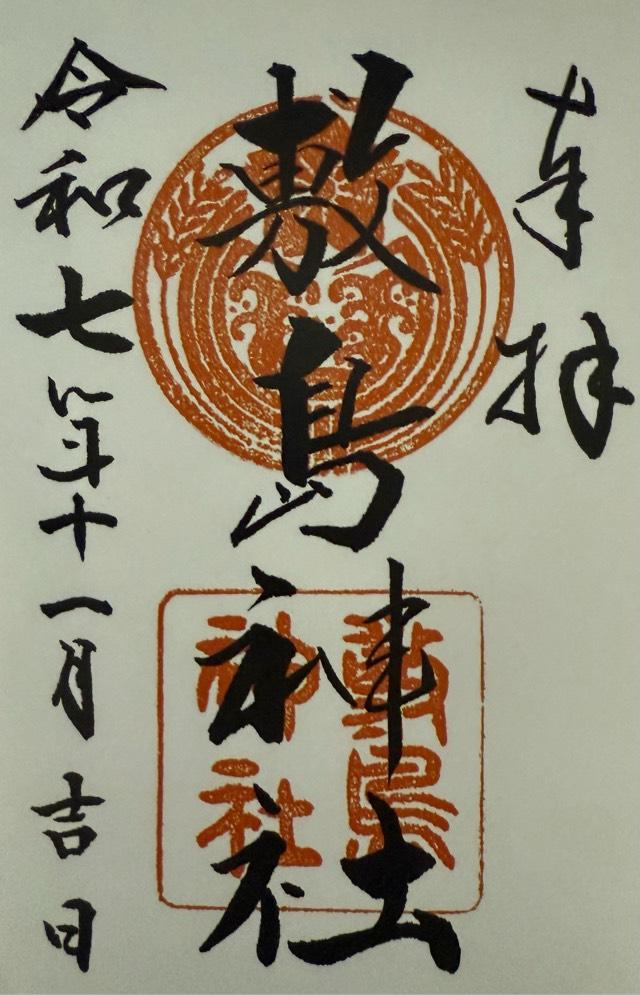 奉拝
敷島神社
敷島
神社
令和七年十一月吉日